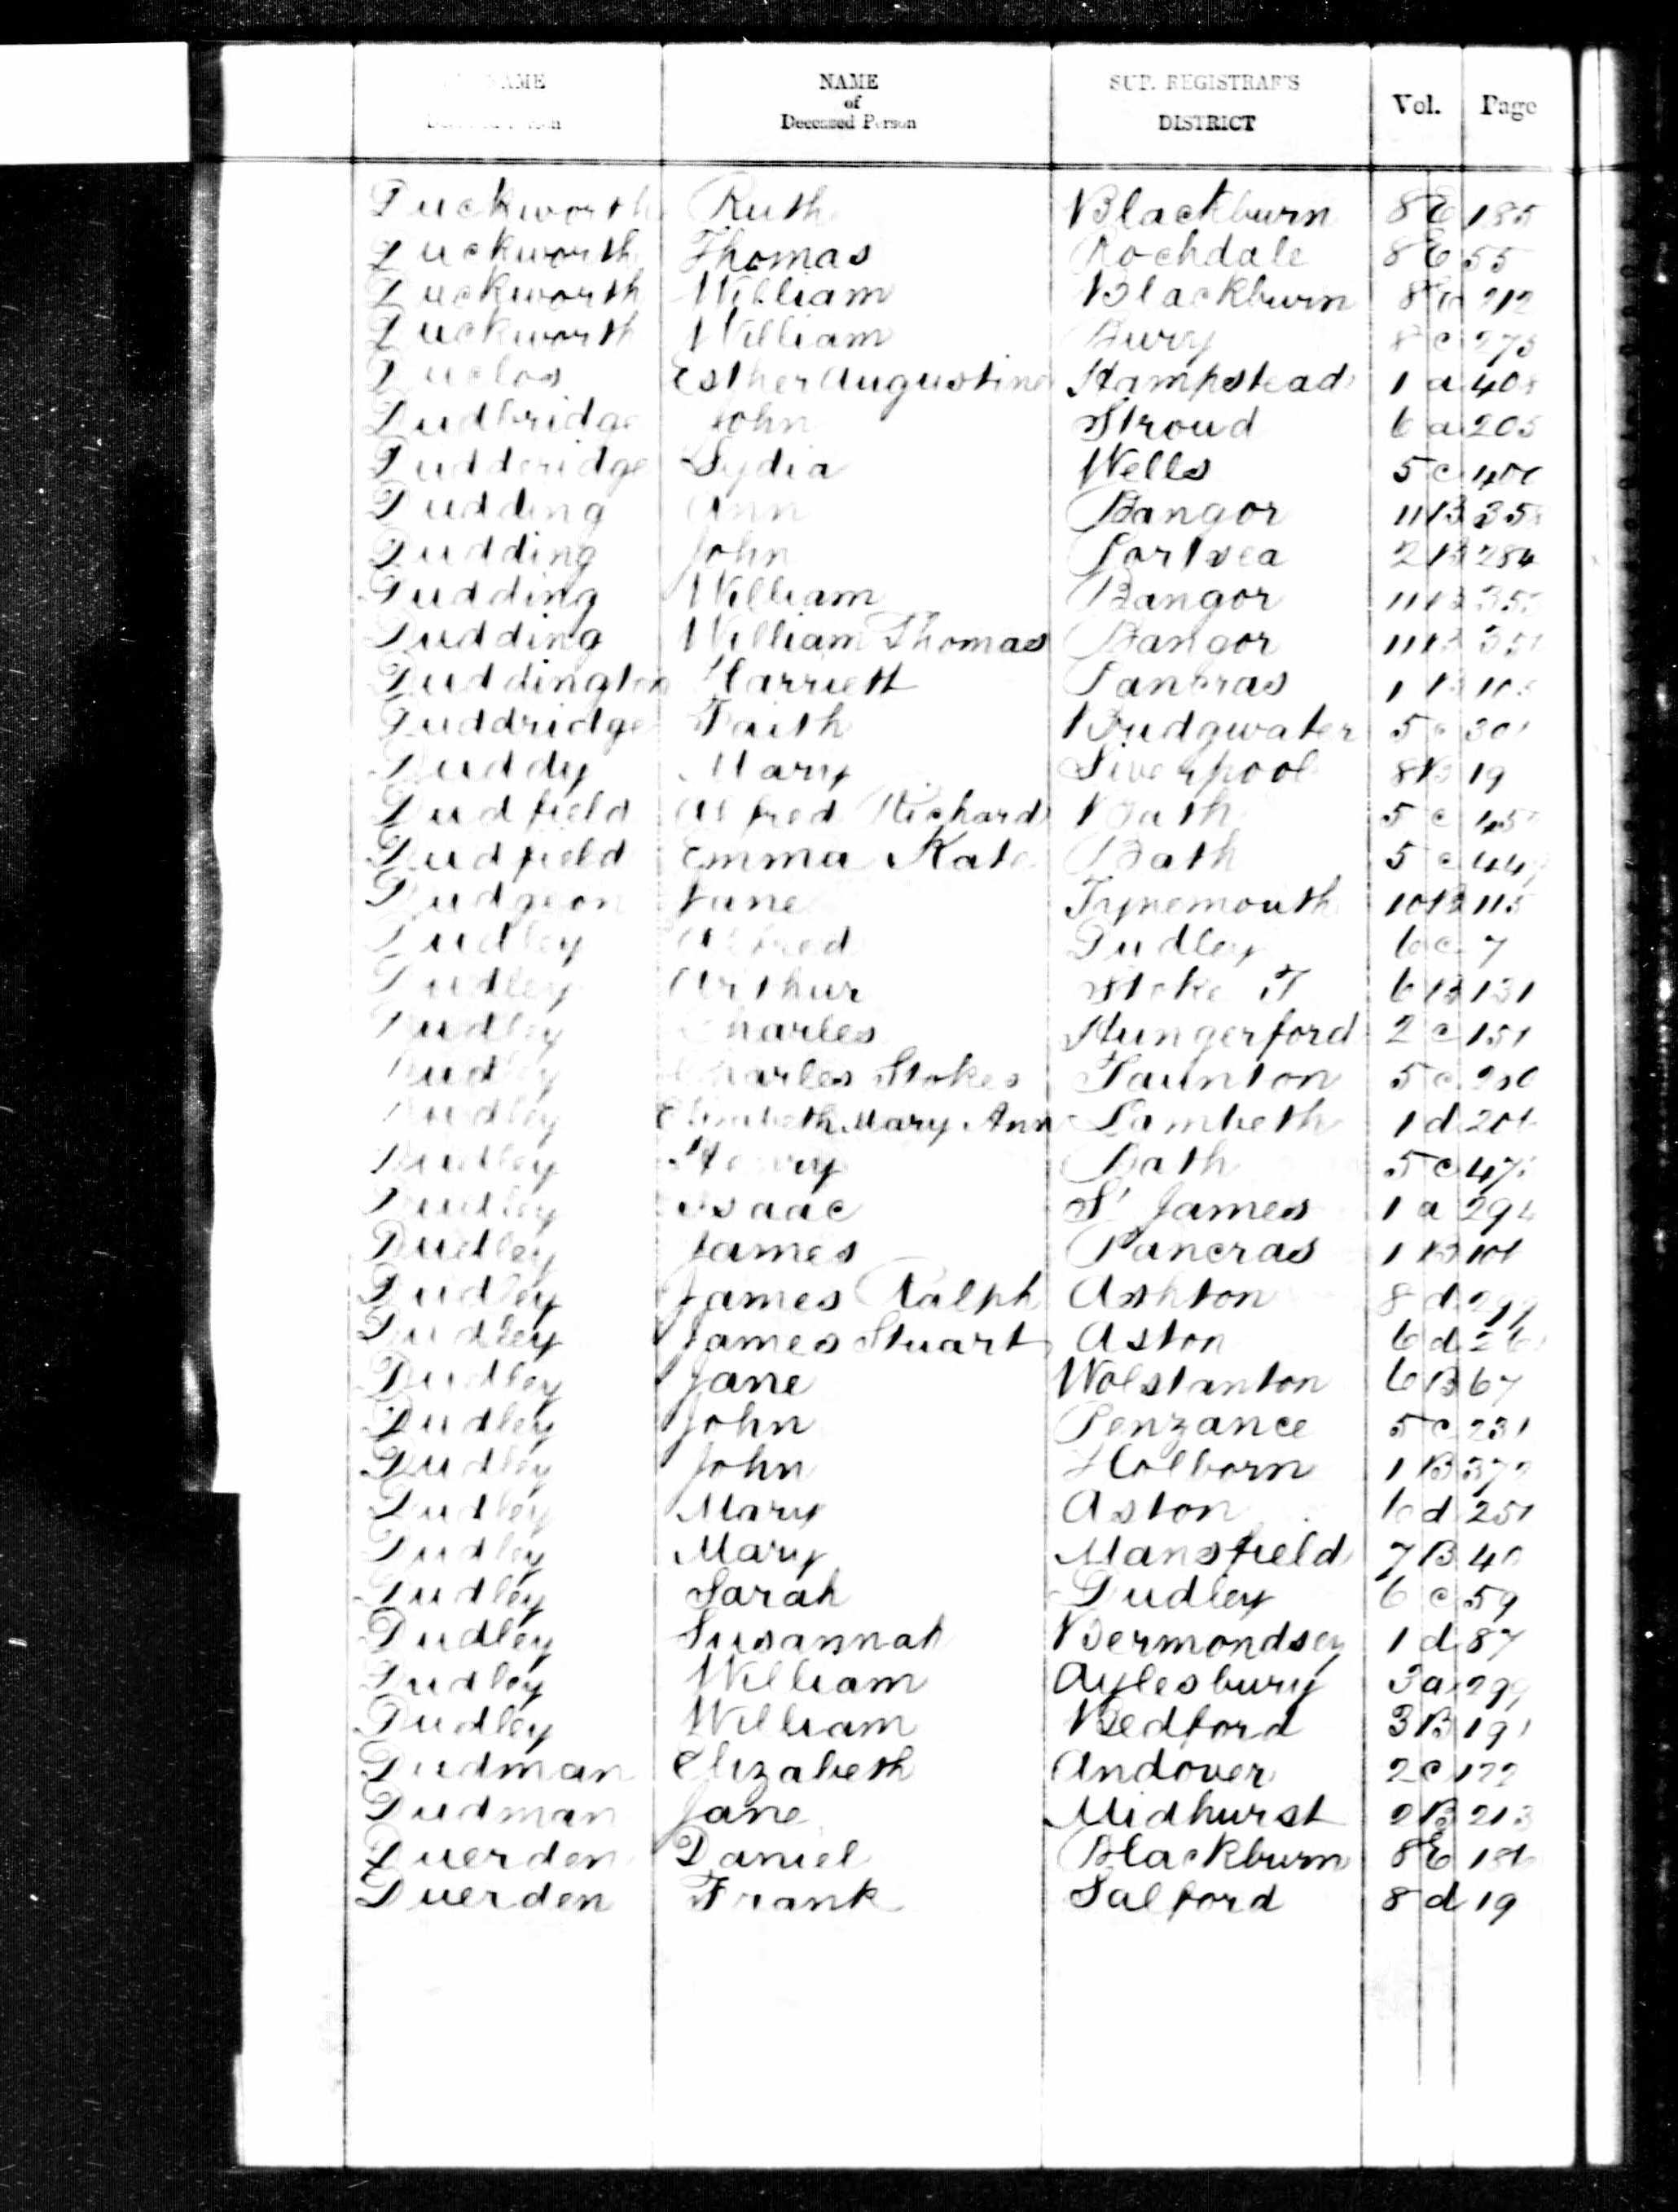 NAME NAME SUP. REGISTRAR'S Vol. Page
of
Deceased Person DISTRICT
Duckworth Ruth Blackburn 8 E 185
Duckworth Thomas Rochdale 8 E 55
Duckworth William Blackburn 8 E 212
Duckworth William Bury 8 c 273
Duclos Esther Augustine Hampstead 1 a 408
Dudbridge John Stroud 6 a 205
Dudderidge Lydia Wells 5 c
Dudding Ann Bangor 11 B
Dudding John Portsea 2 B 284
Dudding William Bangor 11 B
Dudding William Thomas Bangor 11 B
Duddington Harriett Pancras 1 B
Duddridge Faith Bridgwater 5 c 301
Duddy Mary Liverpool 8 B 19
Dudfield Alfred Richard Bath 5 c
Dudfield Emma Kate Bath 5 c
Dudgeon Jane Tynemouth 10 B 115
Dudley Alfred Dudley 6 c 7
Dudley Arthur Stoke T 6 B 131
Dudley Charles Hungerford 2 c 151
Dudley Charles Stokes Taunton 5 c
Dudley Elizabeth Mary Ann Lambeth 1 d
Dudley Henry Bath 5 c
Dudley Isaac St James 1 a
Dudley James Pancras 1 B
Dudley James Ralph Ashton 8 d 299
Dudley James Stuart Aston 6 d
Dudley Jane Wolstanton 6 B 67
Dudley John Penzance 5 c 231
Dudley John Holborn 1 B
Dudley Mary Aston 6 d 251
Dudley Mary Mansfield 7 B 40
Dudley Sarah Dudley 6 c 59
Dudley Susannah Bermondsey 1 d 87
Dudley William Aylesbury 3 a 299
Dudley William Bedford 3 B 191
Dudman Elizabeth Andover 2 c
Dudman Jane Midhurst 2 B 213
Duerden Daniel Blackburn 8 E 186
Duerden Frank Salford 8 d 19